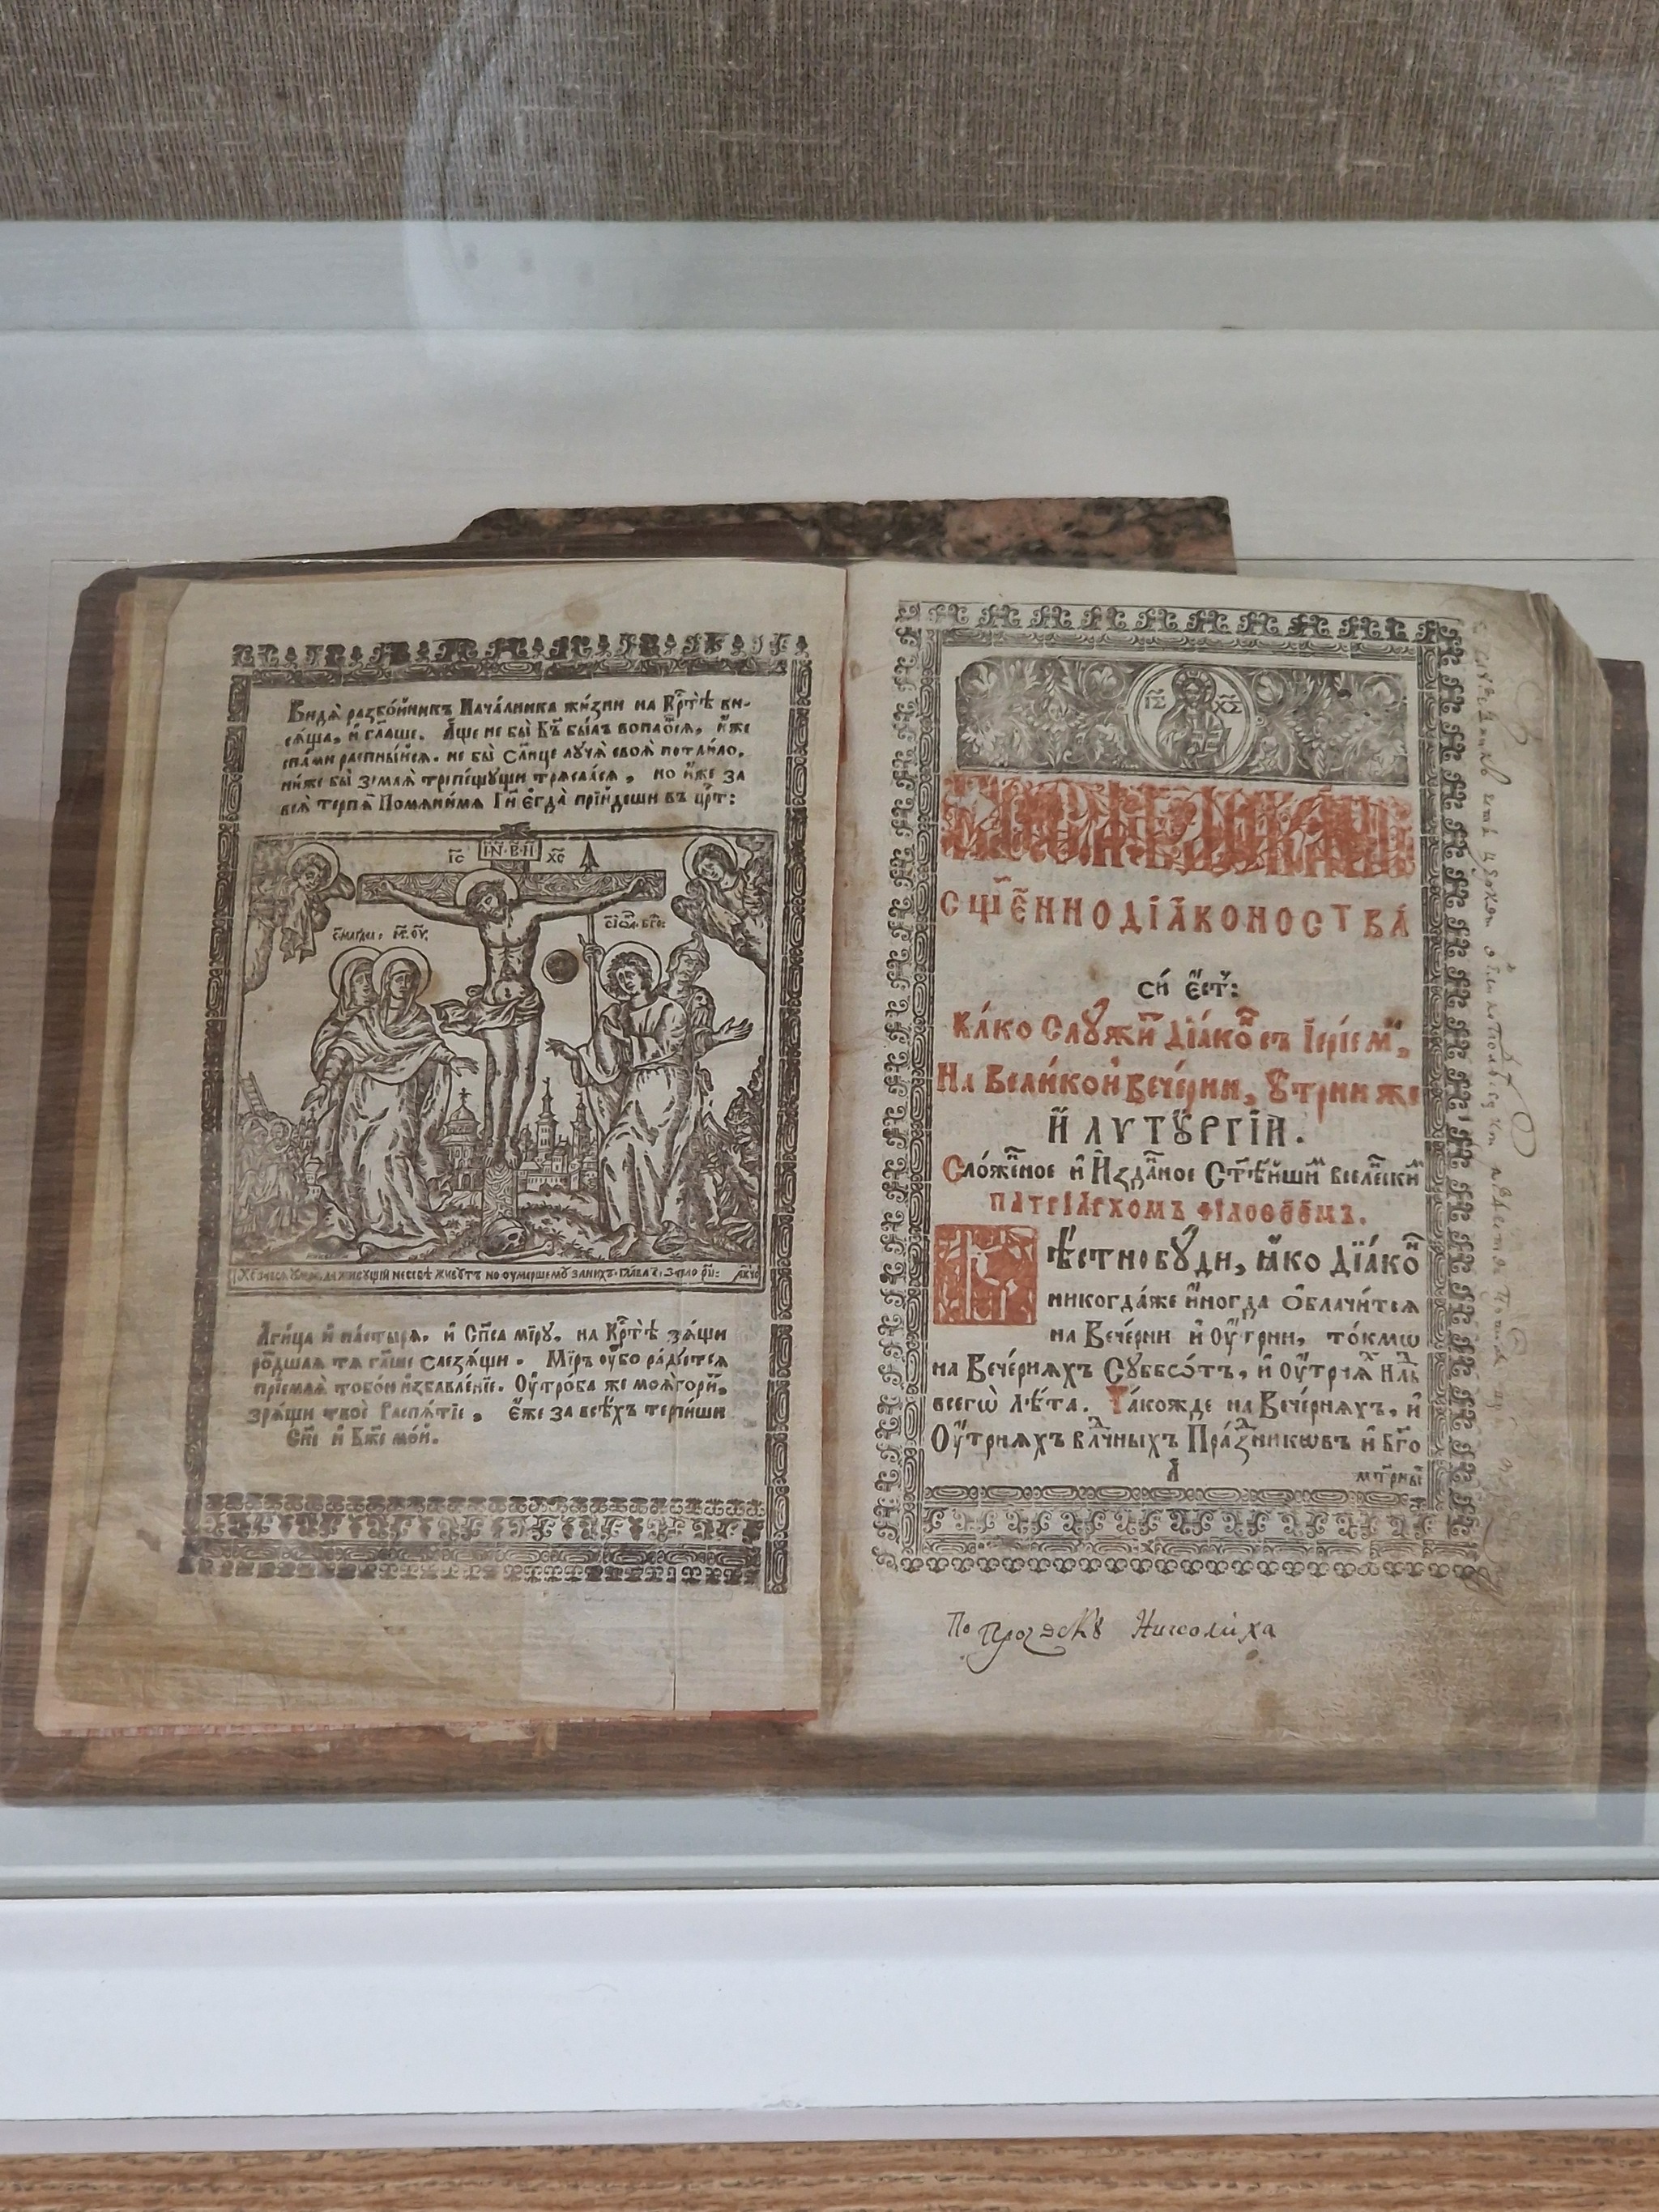 Видѧ̀ разбо́йникъ Нача́лника жи́зни на Крⷭ҇тѣ ви-
сѧ́ща, и҆ гл҃аше. А҆́ще не бы̀ Бг҃ъ бы́лъ вопло́йсѧ, и҆́же
сна́ми распны́йсѧ. не бы̀ Сл҃нце лꙋчѧ̀ своѧ̀ потаи́ло,
ни́же бы̀ землѧ̀ трепе́щꙋщи трѧса́сѧ, но и҆́же за
всѧ̀ терпѧ̀ Помѧни́мѧ Гд҇и є҆гда̀ прїи́деши въ црⷭ҇т:
І҃С І҃Н·В·І҃ Х҃С
С҃ МАГДА: М҃Р. Ѳ҃Ꙋ.
С҃ІѠА. БГО:
А҆́гнца и҆ па́стырѧ, и҆ Сп҃са мі́рꙋ, на Крⷭ҇тѣ зрѧ́щи
ро́ждшаѧ тѧ гл҃аше слезѧ́щи. Мі́ръ ᲂу҆́бо ра́дꙋетсѧ
прїе́млѧ тобо́и и҆збавле́нїе. Оу҆тро́ба же моѧ̀ гори́т,
зрѧ́щи твоѐ Распѧ́тїе, є҆́же за всѣ́хъ терпи́ши
Сн҃е и҆ Бж҃е мо́й.
І҃С Х҃С
СЩ҃Є́ННОДІА́КОНОСТВА̀
сѝ є҆́ст:
Ка́кѡ Слꙋжи́т Дїа́кон съ І҆ере́ем,
На Вели́кой Вече́рни, Ꙋ҆́трни же
И҆ ЛѴТꙊРГІ́И.
Сло́женое и҆ И҆́зданое Ст҃ѣ́йшим вселе́нским
ПАТРІА́РХОМЪ ФІЛОѲЕ́ОМЪ.
ѣ́стно бꙋ́ди, ꙗ҆́ко Дїа́кон
никогда́же и҆́ногда Ѻ҆блачи́тсѧ
на Вече́рни и҆ Оу҆́трни, то́кмѡ
на Вече́рнѧхъ Сꙋббѡ́тъ, и҆ Оу҆́трнѧх Нд҃ль
всегѡ̀ лѣ́та. Та́кожде на Вече́рнѧхъ, и҆
Оу҆́трнѧхъ влⷣчныхъ Пра́здникѡвъ и҆ бг҃о
а҃
мт҃рны